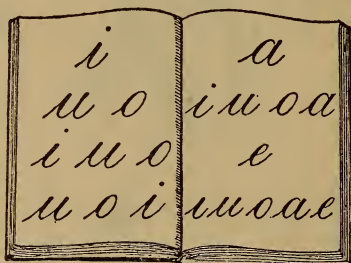 i
u o
i u o
u o i
a
i u o a
e
i u o a e